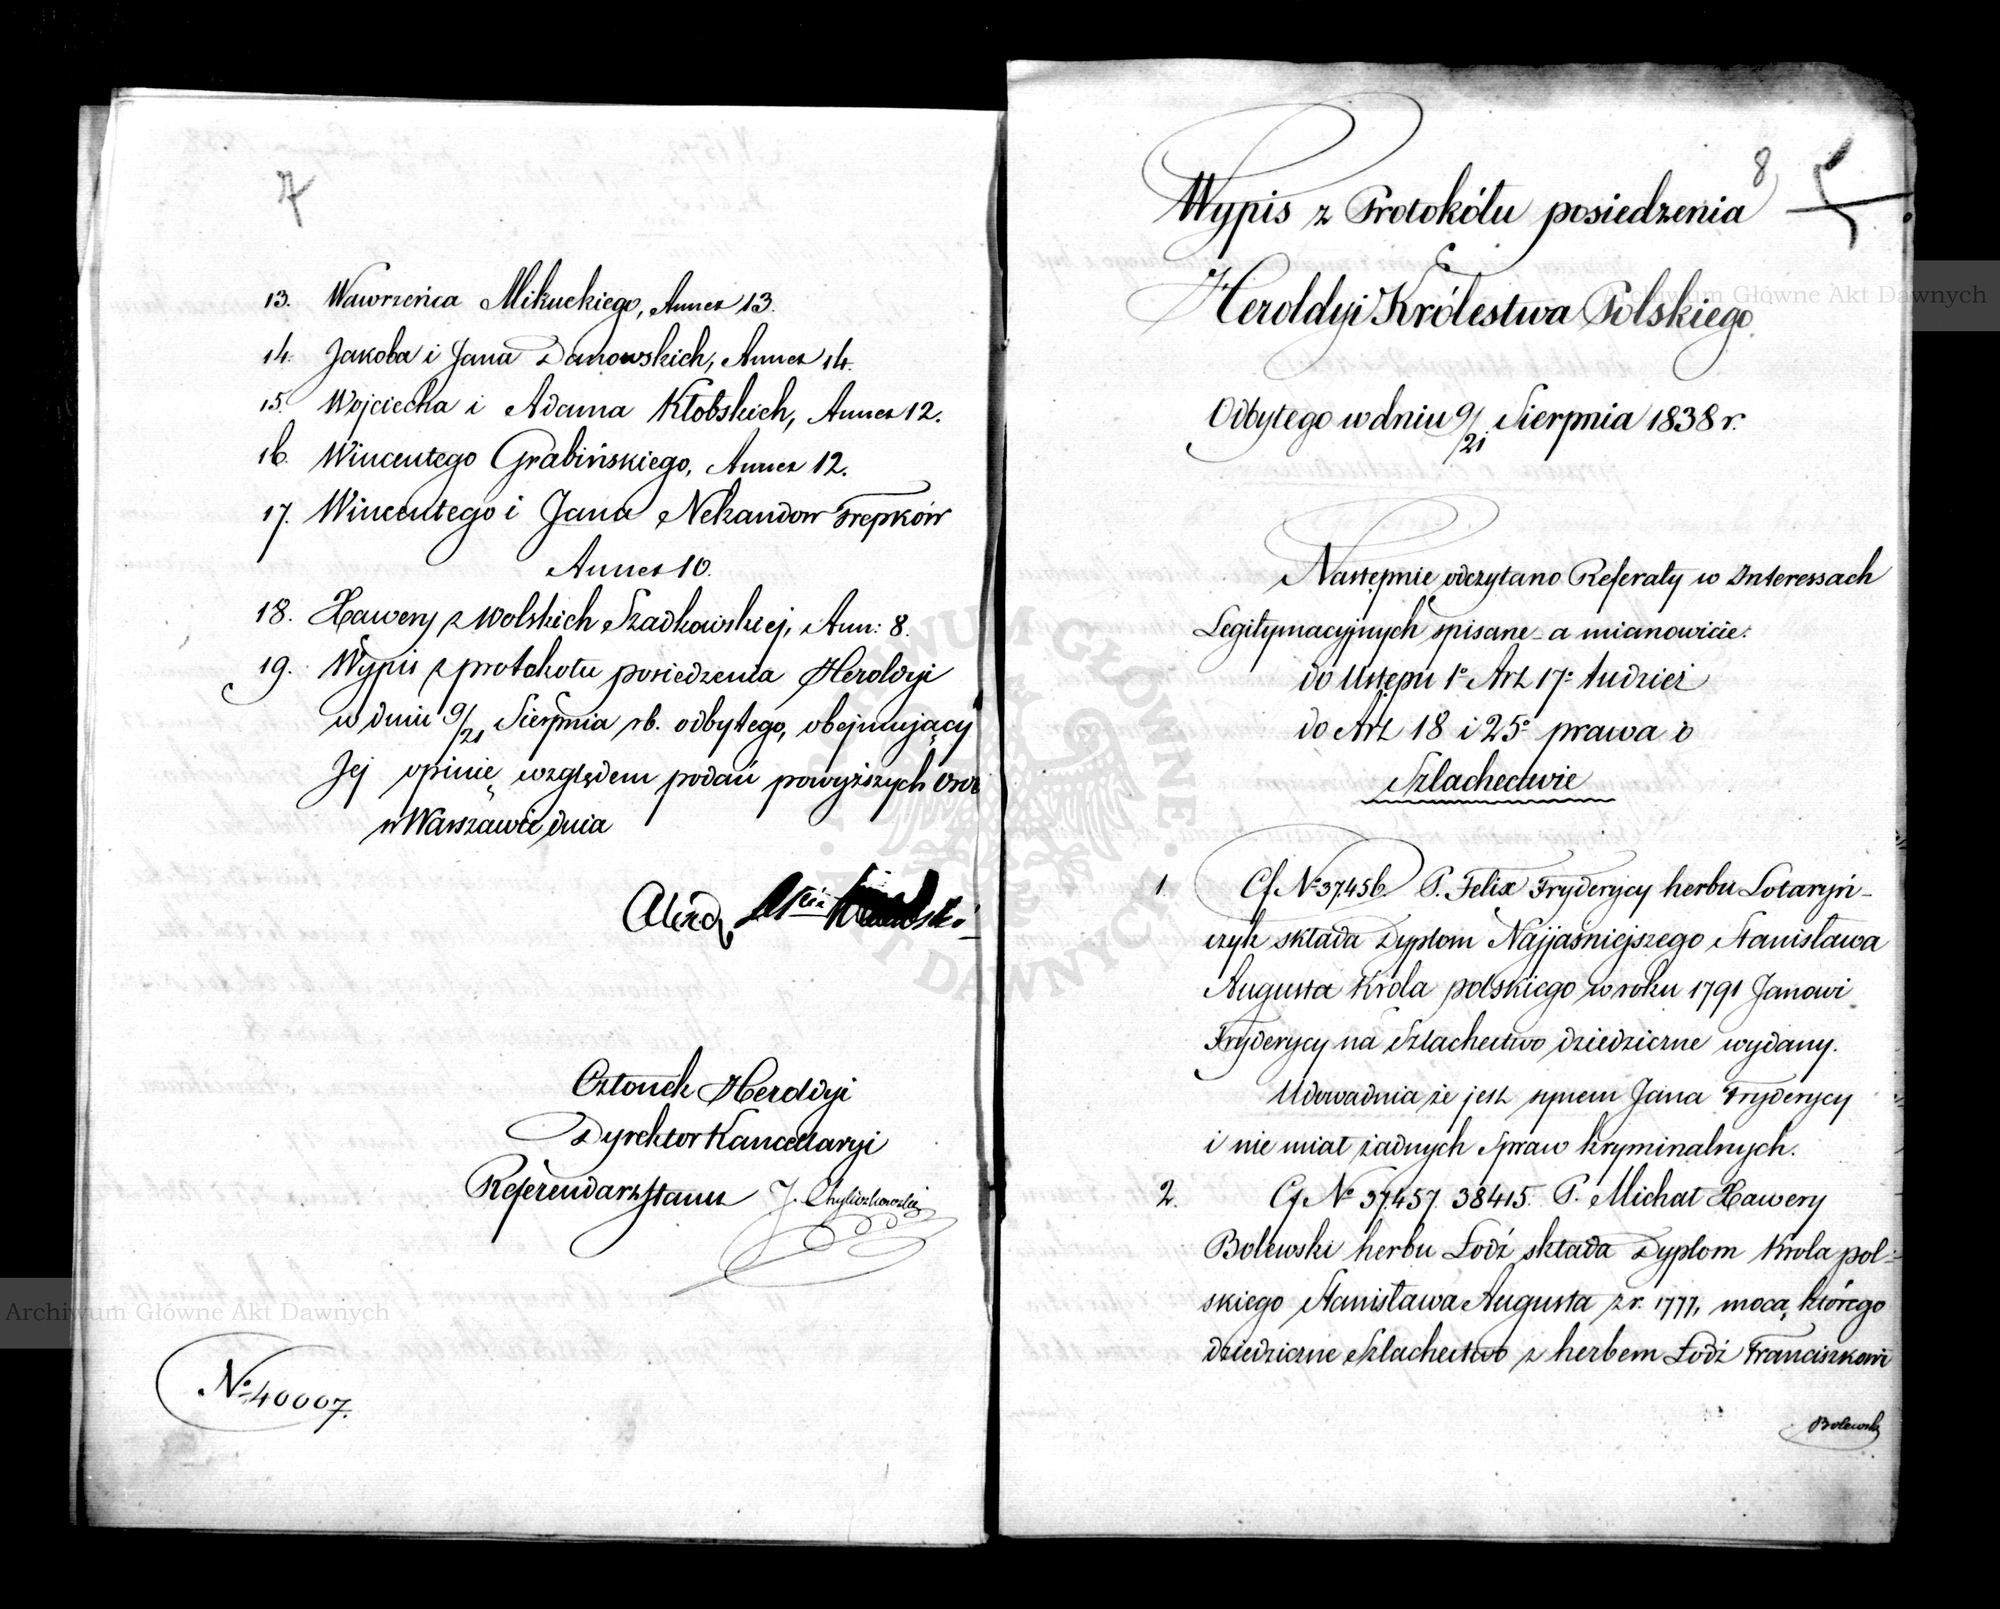 7
13. Wawrzeńca Mikuckiego, Annex 13.
14. Jakoba i Jana Danowskich, Annex 14.
15. Wojciecha i Adama Kłobskich, Annex 12.
16. Wincentego Grabińskiego, Annex 12.
17. Wincentego i Jana Nekandow Trepków
Annex 10.
18. Xawery z Wolskich Szadkowskiej, Ann: 8.
19. Wypis z protokołu posiedzenia Heroldyi
w dniu 9/21 Sierpnia rb. odbytego, obejmujący
Jej opinię względem podań powyższych Osób
w Warszawie dnia
Członek Heroldyi
Dyrektor Kancellaryi
Referendarz Stanu J. Chyliczkowski
№ 40007.
8
Wypis z Protokółu posiedzenia
Heroldyi Królestwa Polskiego
Odbytego w dniu 9/21 Sierpnia 1838 r.
Następnie odczytano Referaty w Interessach
Legitymacyjnych spisane a mianowicie:
do Ustępu 1º Art 17º tudzież
do Art 18 i 25º prawa o
Szlachectwie
1. Cf № 37456 P. Felix Fryderycy herbu Lotaryń-
czyk składa Dyplom Najjaśniejszego Stanisława
Augusta Króla polskiego w roku 1791 Janowi
Fryderycy na Szlachectwo dziedziczne wydany.
Udowadnia że jest synem Jana Fryderycy
i nie miał żadnych Spraw kryminalnych.
2. Cf № 37457. 38415. P. Michał Xawery
Bolewski herbu Łodź składa Dyplom Krola pol-
skiego Stanisława Augusta z r. 1777, mocą którego
dziedziczne Szlachectwo z herbem Łodź Franciszkowi
Bolewsk
Archiwum Główne Akt Dawnych
Archiwum Główne Akt Dawnych
ARCHIWUM GŁÓWNE AKT DAWNYCH